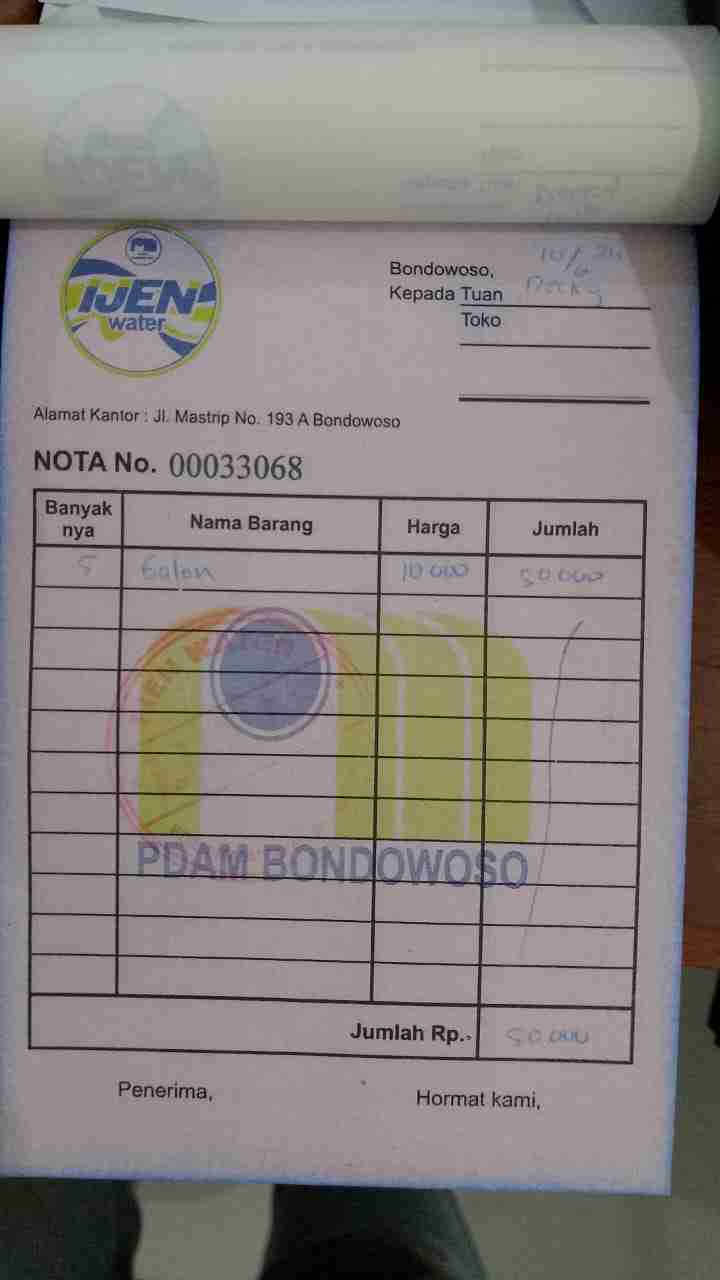 IJEN
water
Bondowoso, 10/6 24
Kepada Tuan
Toko
Alamat Kantor : Jl. Mastrip No. 193 A Bondowoso
NOTA No. 00033068
Banyak nya Nama Barang Harga Jumlah
5 Galon 10 000 50 000
IJEN WATER
PDAM BONDOWOSO
Jumlah Rp.- 50.000
Penerima, Hormat kami,